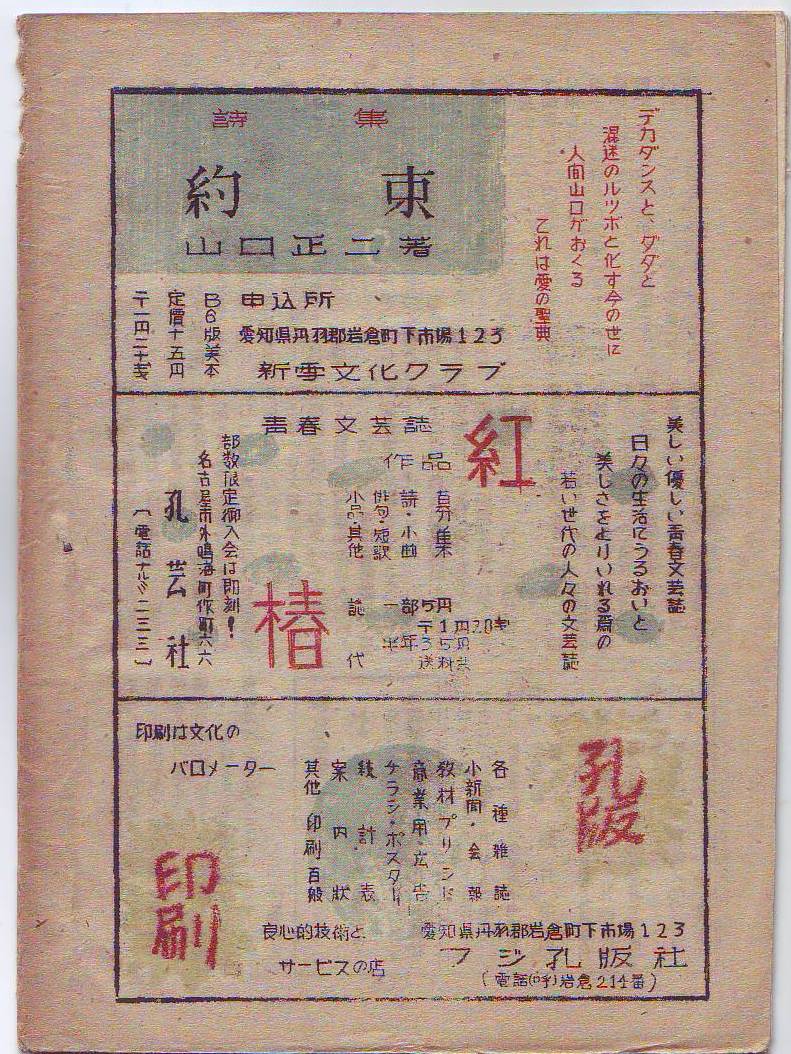 デカダンスと、ダダと
混迷のルツボと化す今の世に
人間山口がおくる
これは愛の聖典
詩集
約束
山口正二著
申込所
愛知県丹羽郡岩倉町下市場123
新雪文化クラブ
B6版美本
定價十五円
〒一円二十戋
美しい優しい青春文芸誌
日々の生活にうるおいと
美しさをとりいれる為の
若い世代の人々の文芸誌
青春文芸誌
紅
椿
作品募集
詩・小曲
俳句・短歌
小品・其他
誌代
一部5円
〒1円20戋
半年35円
送料共
部数限定御入会は即刻!
名古屋市外鳴海町作町六六
孔芸社
〔電話ナルミ二三三〕
印刷は文化の
バロメーター
孔版
印刷
各種雑誌
小新聞・会報
教材プリント
商業用・広告
チラシ・ポスター
統計表
案内状
其他印刷百般
良心的技術と
サービスの店
愛知県丹羽郡岩倉町下市場123
フジ孔版社
(電話(呼)岩倉214番)